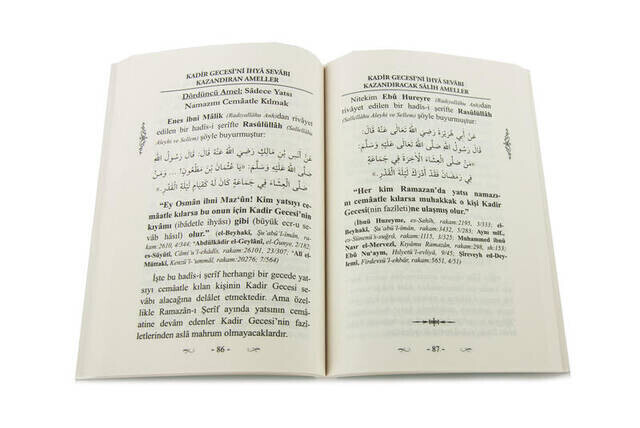 KADİR GECESİ'Nİ İHYÂ SEVÂBI
KAZANDIRAN AMELLER
Dördüncü Amel: Sâdece Yatsı
Namazını Cemâatle Kılmak
Enes ibni Mâlik (Radıyallâhu Anh)dan rivâyet
edilen bir hadîs-i şerîfte Rasûlüllâh (Sallellâhu
Aleyhi ve Sellem) şöyle buyurmuştur:
عَنْ أَنَسِ بْنِ مَالِكٍ رَضِيَ اللَّهُ عَنْهُ قَالَ: قَالَ رَسُولُ اللَّهِ
صَلَّى اللَّهُ عَلَيْهِ وَسَلَّمَ: «يَا عُثْمَانَ بْنَ مَظْعُونٍ! ... وَمَنْ
صَلَّى الْعِشَاءَ فِي جَمَاعَةٍ كَانَ لَهُ كَقِيَامِ لَيْلَةِ الْقَدْرِ.»
"Ey Osmân ibni Maz'ûn! Kim yatsıyı ce-
mâatle kılarsa bu onun için Kadir Gecesi'nin
kıyâmı (ibâdetle ihyâsı) gibi (büyük ecr-u se-
vâb hâsıl) olur." (el-Beyhakî, Şu'abü'l-îmân, ra-
kam:2610, 4/344; Abdülkâdir el-Geylânî, el-Ğunye, 2/182;
es-Süyûtî, Câmi'u'l-ehâdîs, rakam:26160, 23/307; Alî el-
Müttakî, Kenzü'l-'ummâl, rakam:20276, 7/564)
İşte bu hadîs-i şerîf herhangi bir gecede yat-
sıyı cemâatle kılan kişinin Kadir Gecesi se-
vâbı alacağına delâlet etmektedir. Ama özel-
likle Ramazân-ı Şerîf ayında yatsının cemâ-
atine devâm edenler Kadir Gecesi'nin fazî-
letlerinden aslâ mahrum olmayacaklardır.
- 86 -
KADİR GECESİ'Nİ İHYÂ SEVÂBI
KAZANDIRACAK SÂLİH AMELLER
Nitekim Ebû Hureyre (Radıyallâhu Anh)dan
rivâyet edilen bir hadîs-i şerîfte Rasûlüllâh
(Sallellâhu Aleyhi ve Sellem) şöyle buyurmuştur:
عَنْ أَبِي هُرَيْرَةَ رَضِيَ اللَّهُ تَعَالَى عَنْهُ قَالَ: قَالَ رَسُولُ اللَّهِ
صَلَّى اللَّهُ عَلَيْهِ وَسَلَّمَ: «مَنْ صَلَّى الْعِشَاءَ الْآخِرَةَ فِي جَمَاعَةٍ
فِي رَمَضَانَ فَقَدْ أَدْرَكَ لَيْلَةَ الْقَدْرِ.»
"Her kim Ramazan'da yatsı namazı-
nı cemâatle kılarsa muhakkak o kişi Kadir
Gecesi(nin fazîleti)ne ulaşmış olur."
(İbnü Huzeyme, es-Sahîh, rakam:2195, 3/333; el-
Beyhakî, Şu'abü'l-îmân, rakam:3432, 5/283; Aynı mlf.
es-Sünenü's-suğrâ, rakam:1425, 3/432; Muhammed ibnü
Nasr el-Mervezî, Kıyâmu Ramazân, rakam:298, sh:153;
Ebû Nu'aym, Hılyetü'l-evliyâ, 9/45; Şîreveyh ed-Dey-
lemî, Firdevsü'l-ehbâr, rakam:5651, 4/51)
- 87 -